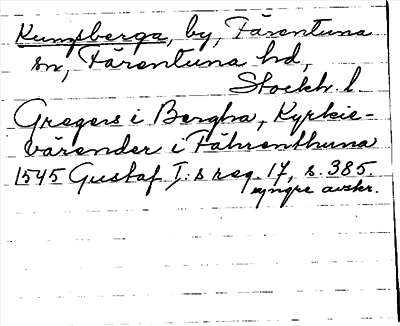 Kungsberga, by, Färentuna
sn, Färentuna hd,
Stockh. l.
Gregers i Bergha, Kyrkie-
värender i Fährenthuna
1545 Gustaf I:s reg. 17, s. 385.
yngre avskr.